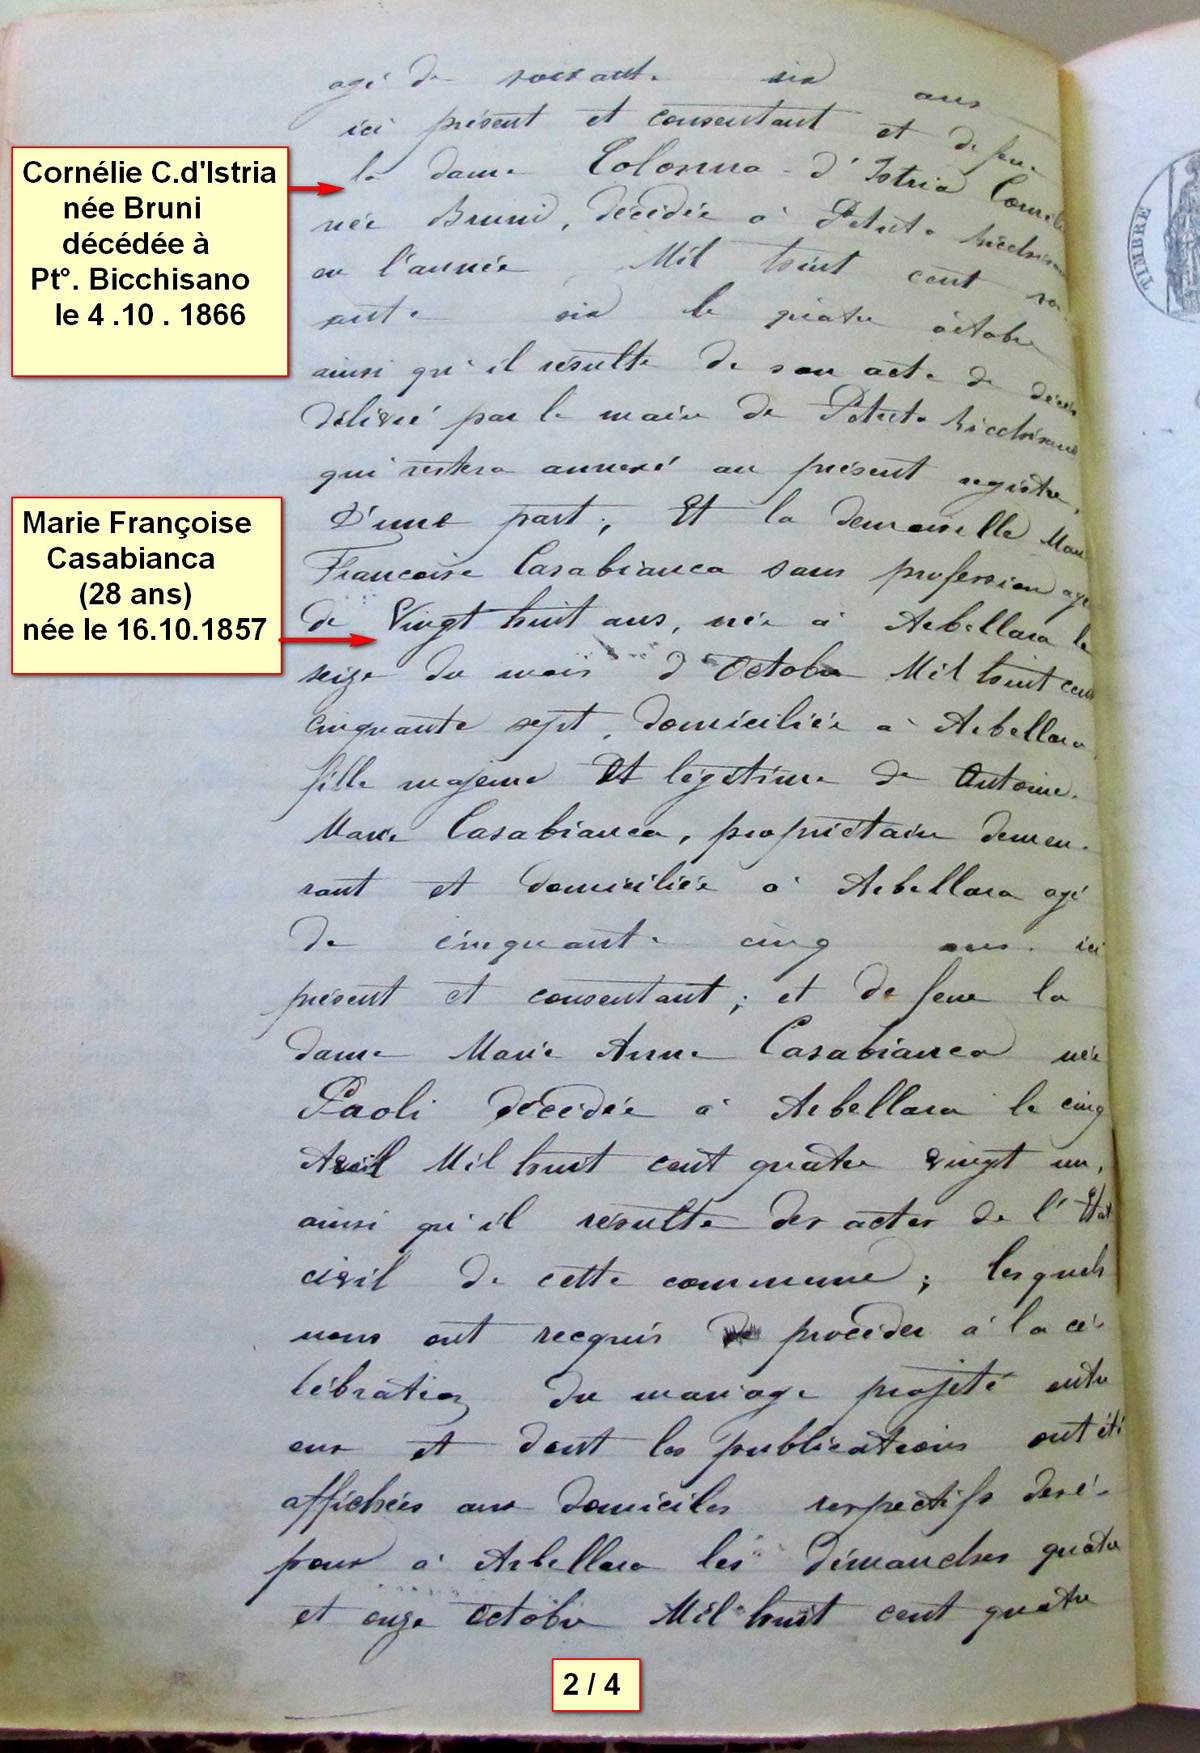 agé de soixante six ans
ici présent et consentant et de feue
la dame Colonna d'Istria Cornélie
née Bruni, décédée à Petreto Bicchisano
en l'année Mil huit cent soi-
xante six le quatre octobre
ainsi qu'il résulte de son acte de décès
délivré par le maire de Petreto Bicchisano
qui restera annexé au présent registre,
D'une part; Et la demoiselle Marie
Françoise Casabianca sans profession agé
de Vingt huit ans, née à Arbellara le
seize du mois d'Octobre Mil huit cent
cinquante sept, domiciliée à Arbellara
fille majeure Et légitime de Antoine
Marie Casabianca, propriétaire demeu-
rant et domiciliée à Arbellara agé
de cinquante cinq ans. ici
présent et consentant; et de feue la
dame Marie Anne Casabianca née
Paoli décédée à Arbellara le cinq
Avril Mil huit cent quatre vingt un,
ainsi qu'il résulte des actes de l'Etat
civil de cette commune; lesquels
nous ont recquis de procéder à la cé-
lébration du mariage projeté entre
eux et dont les publications ont été
affichées aux domiciles respectifs des é-
poux à Arbellara les Dimanches quatre
et onze Octobre Mil huit cent quatre
Cornélie C.d'Istria
née Bruni
décédée à
Pt°. Bicchisano
le 4 .10 . 1866
Marie Françoise
Casabianca
(28 ans)
née le 16.10.1857
2 / 4
TIMBRE